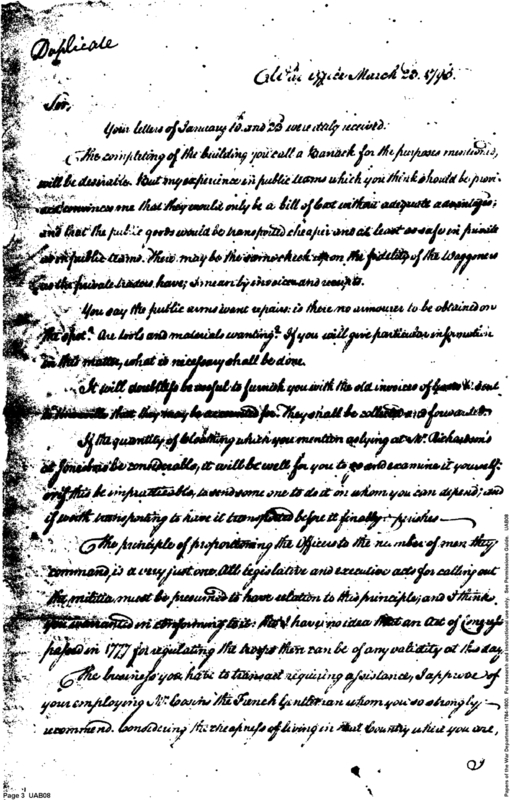 Duplicate
Office March 23. 1793.
Sir,
Your letters of January 15. and 23 were duly received.
The completing of the building you call a Barrack for the purposes mentioned,
will be desirable. But my experience in public teams which you think should be
convinces me that they would only be a bill of Cost without adequate advantages;
and that the public goods would be transported cheaper and at least as safe in private
as in public teams. There may be the same check upon the fidelity of the Waggoners
as the private traders have; I mean by invoices and receipts.
You say the public arms want repairs: is there no armourer to be obtained on
the spot? Are tools and materials wanting? If you will give particular information
in this matter, what is necessary shall be done.
It will doubtless be useful to furnish you with the old invoices of sent
to that they may be accounted for. They shall be collected and forwarded.
If the quantity of cloathing which you mention as lying at Mr. Richardson's
at be considerable, it will be well for you to go and examine it yourself:
or if this be impracticable, to send some one to do it on whom you can depend; and
if worth transporting to have it transported before it finally perishes
The principle of proportioning the Officers to the number of men they
command, is a very just one. All legislative and executive acts for calling out
the militia must be presumed to have relation to this principle; and I think
you warranted in conforming to it: tho' I have no idea that an Act of Congress
passed in 1777 for regulating the troops then can be of any validity at this day.
The business you have to transact requiring assistance, I approve of
your employing Mr. the French Gentleman whom you so strongly
recommend. Considering the cheapness of living in that Country where you are,
Page 3 UAB08
Papers of the War Department 1784-1800. For research and instructional use only. See Permissions Guide. UAB08